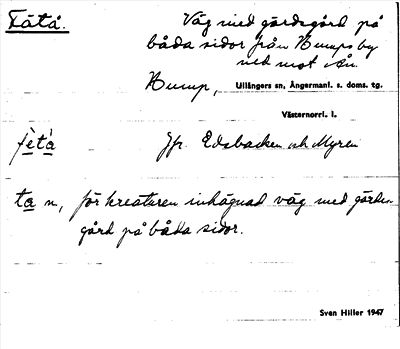 Fätå.
Väg med gärdsgård på
båda sidor från Bumps by
ned mot ån.
Bump, Ullångers sn, Ångermanl. s. doms. tg.
Västernorrl. l.
fètá
Jfr. Edsbacken och Myren
tå n, för kreaturen inhägnad väg med gärdes-
gård på båda sidor.
Sven Hiller 1947